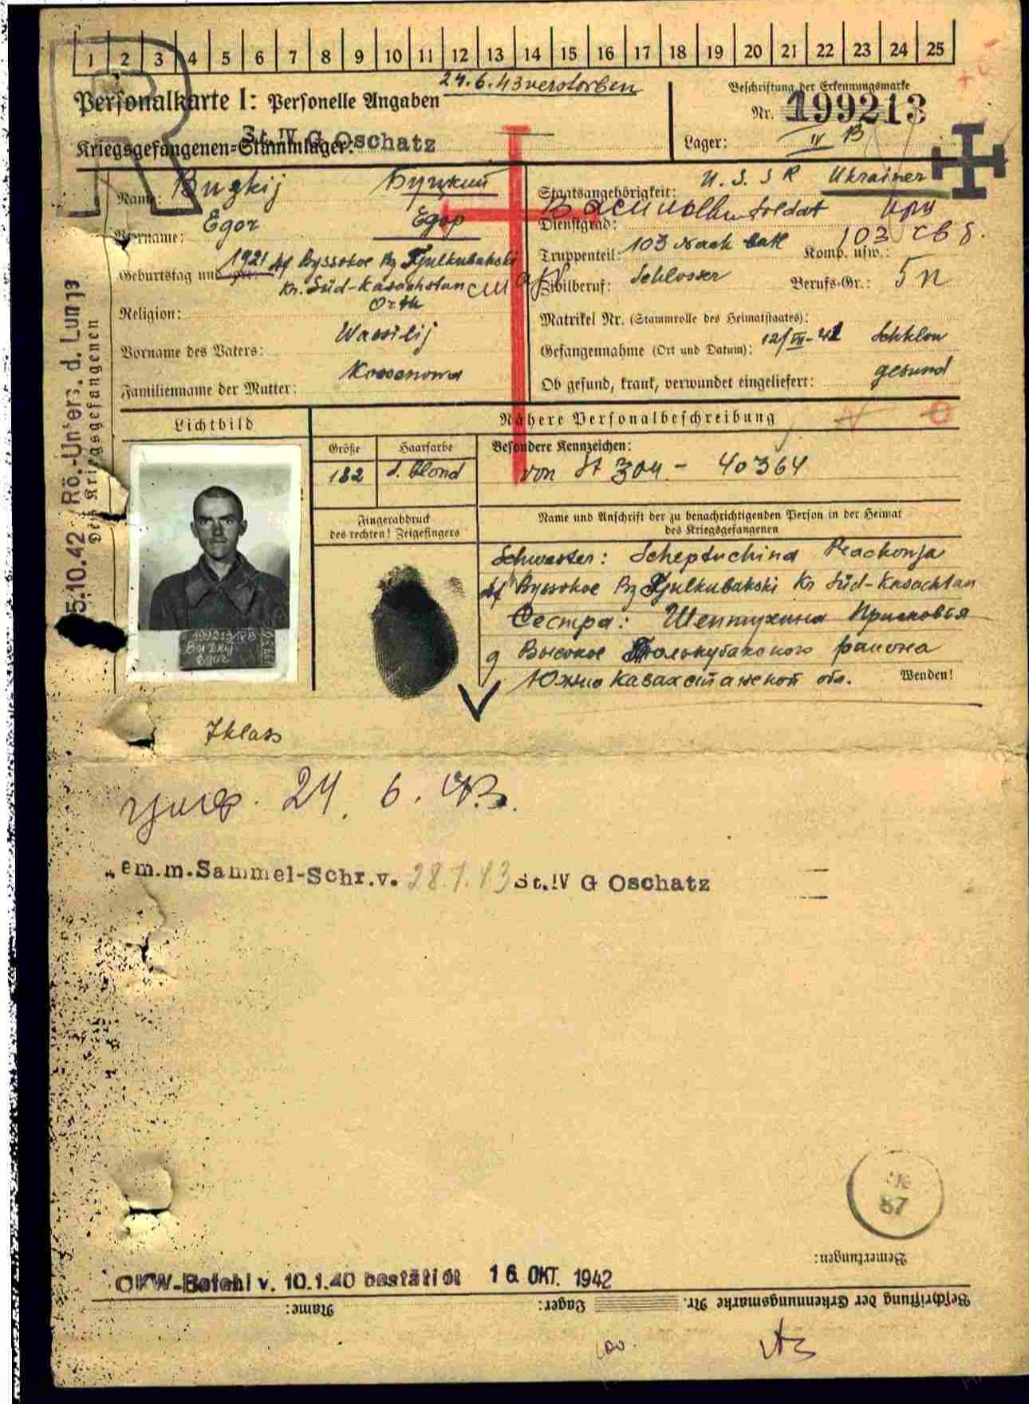 1 2 3 4 5 6 7 8 9 10 11 12 13 14 15 16 17 18 19 20 21 22 23 24 25
24.6.43 verstorben
Personalkarte I: Personelle Angaben
Beschriftung der Erkennungsmarke
Nr. 199213
Kriegsgefangenen-Stammlager:
St. IV G Oschatz
Lager: IV B
Name: Buzkij Буцкий
Staatsangehörigkeit: U. S. S R Ukrainer
Vorname: Egor Егор
Василий
Dienstgrad: Soldat
Truppenteil: 103 Nach batl Komp. usw.: 103 СВ б.
Geburtstag und 1921 Df Byssokoe Bz Tjulkubakski
Kr. Süd-Kasachstan
Zivilberuf: Schlosser Berufs-Gr.: 5 n
Religion: Orth
Matrikel Nr. (Stammrolle des Heimatstaates):
Vorname des Vaters: Wassilij
Gefangennahme (Ort und Datum): 12/VII-42 Schklow
Familienname der Mutter: Kossenowa
Ob gesund, krank, verwundet eingeliefert: gesund
Lichtbild
Nähere Personalbeschreibung
Größe Haarfarbe Besondere Kennzeichen:
182 d. blond von St 304 - 40364
Fingerabdruck
des rechten! Zeigefingers
Name und Anschrift der zu benachrichtigenden Person in der Heimat
des Kriegsgefangenen
Schwester: Scheptuchina
Df Byssokoe Bz Tjulkubakski Kr Süd-Kasachtan
Сестра: Шептухина
д Высокое района
Южно Казахстанской обл.
Wenden!
199213 IV B
Buzkij
Egor
5.10.42
des Kriegsgefangenen
умер. 24. 6. 43.
em.m.Sammel-Schr.v. 28.7.43 St.IV G Oschatz
87
Bemerkungen:
OKW-Befehl v. 10.1.40 bestätigt 16. OKT. 1942
Name: Lager: Beschriftung der Erkennungsmarke Nr.